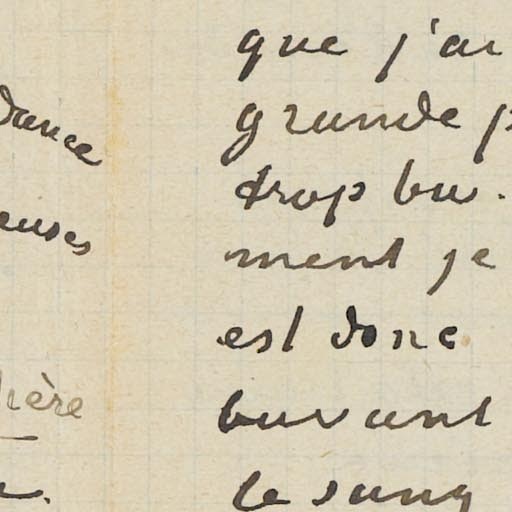 que j'ai
grande p
trop bu.
ment je
est donc
buvant
le sang
dance
euses
hère